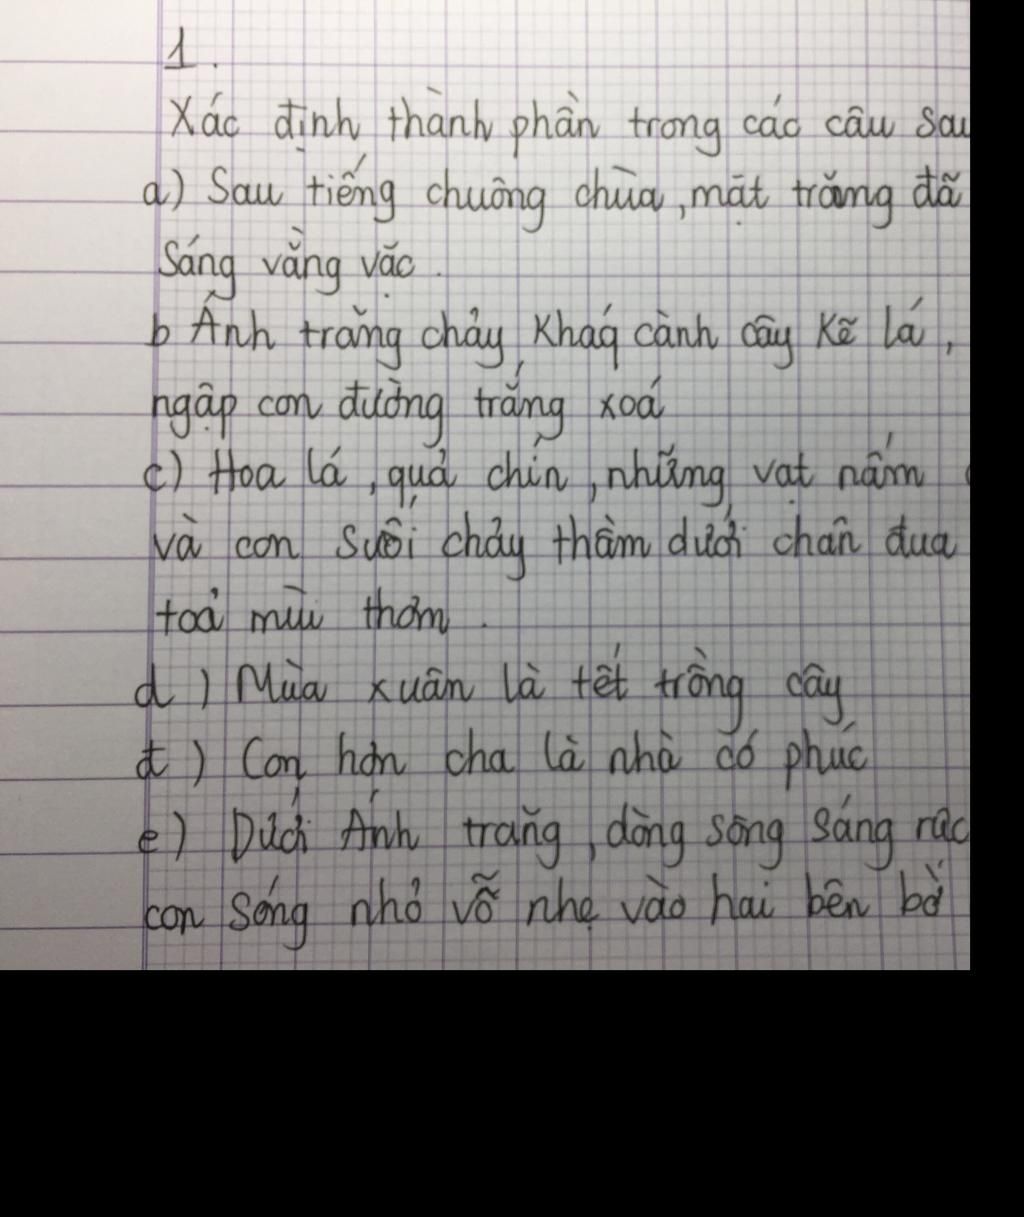 1.
Xác định thành phần trong các câu sau
a) Sau tiếng chuông chùa, mặt trăng đã
Sáng vằng vặc.
b Ánh trăng chảy khắp cành cây kẽ lá,
ngập con đường trắng xoá
c) Hoa lá, quả chín, những vạt nấm
và con suối chảy thầm dưới chân đua
toả mùi thơm.
d) Mùa xuân là tết trồng cây
đ) Con hơn cha là nhà có phúc
e) Dưới Ánh trăng, dòng sông sáng rực
con sóng nhỏ vỗ nhẹ vào hai bên bờ